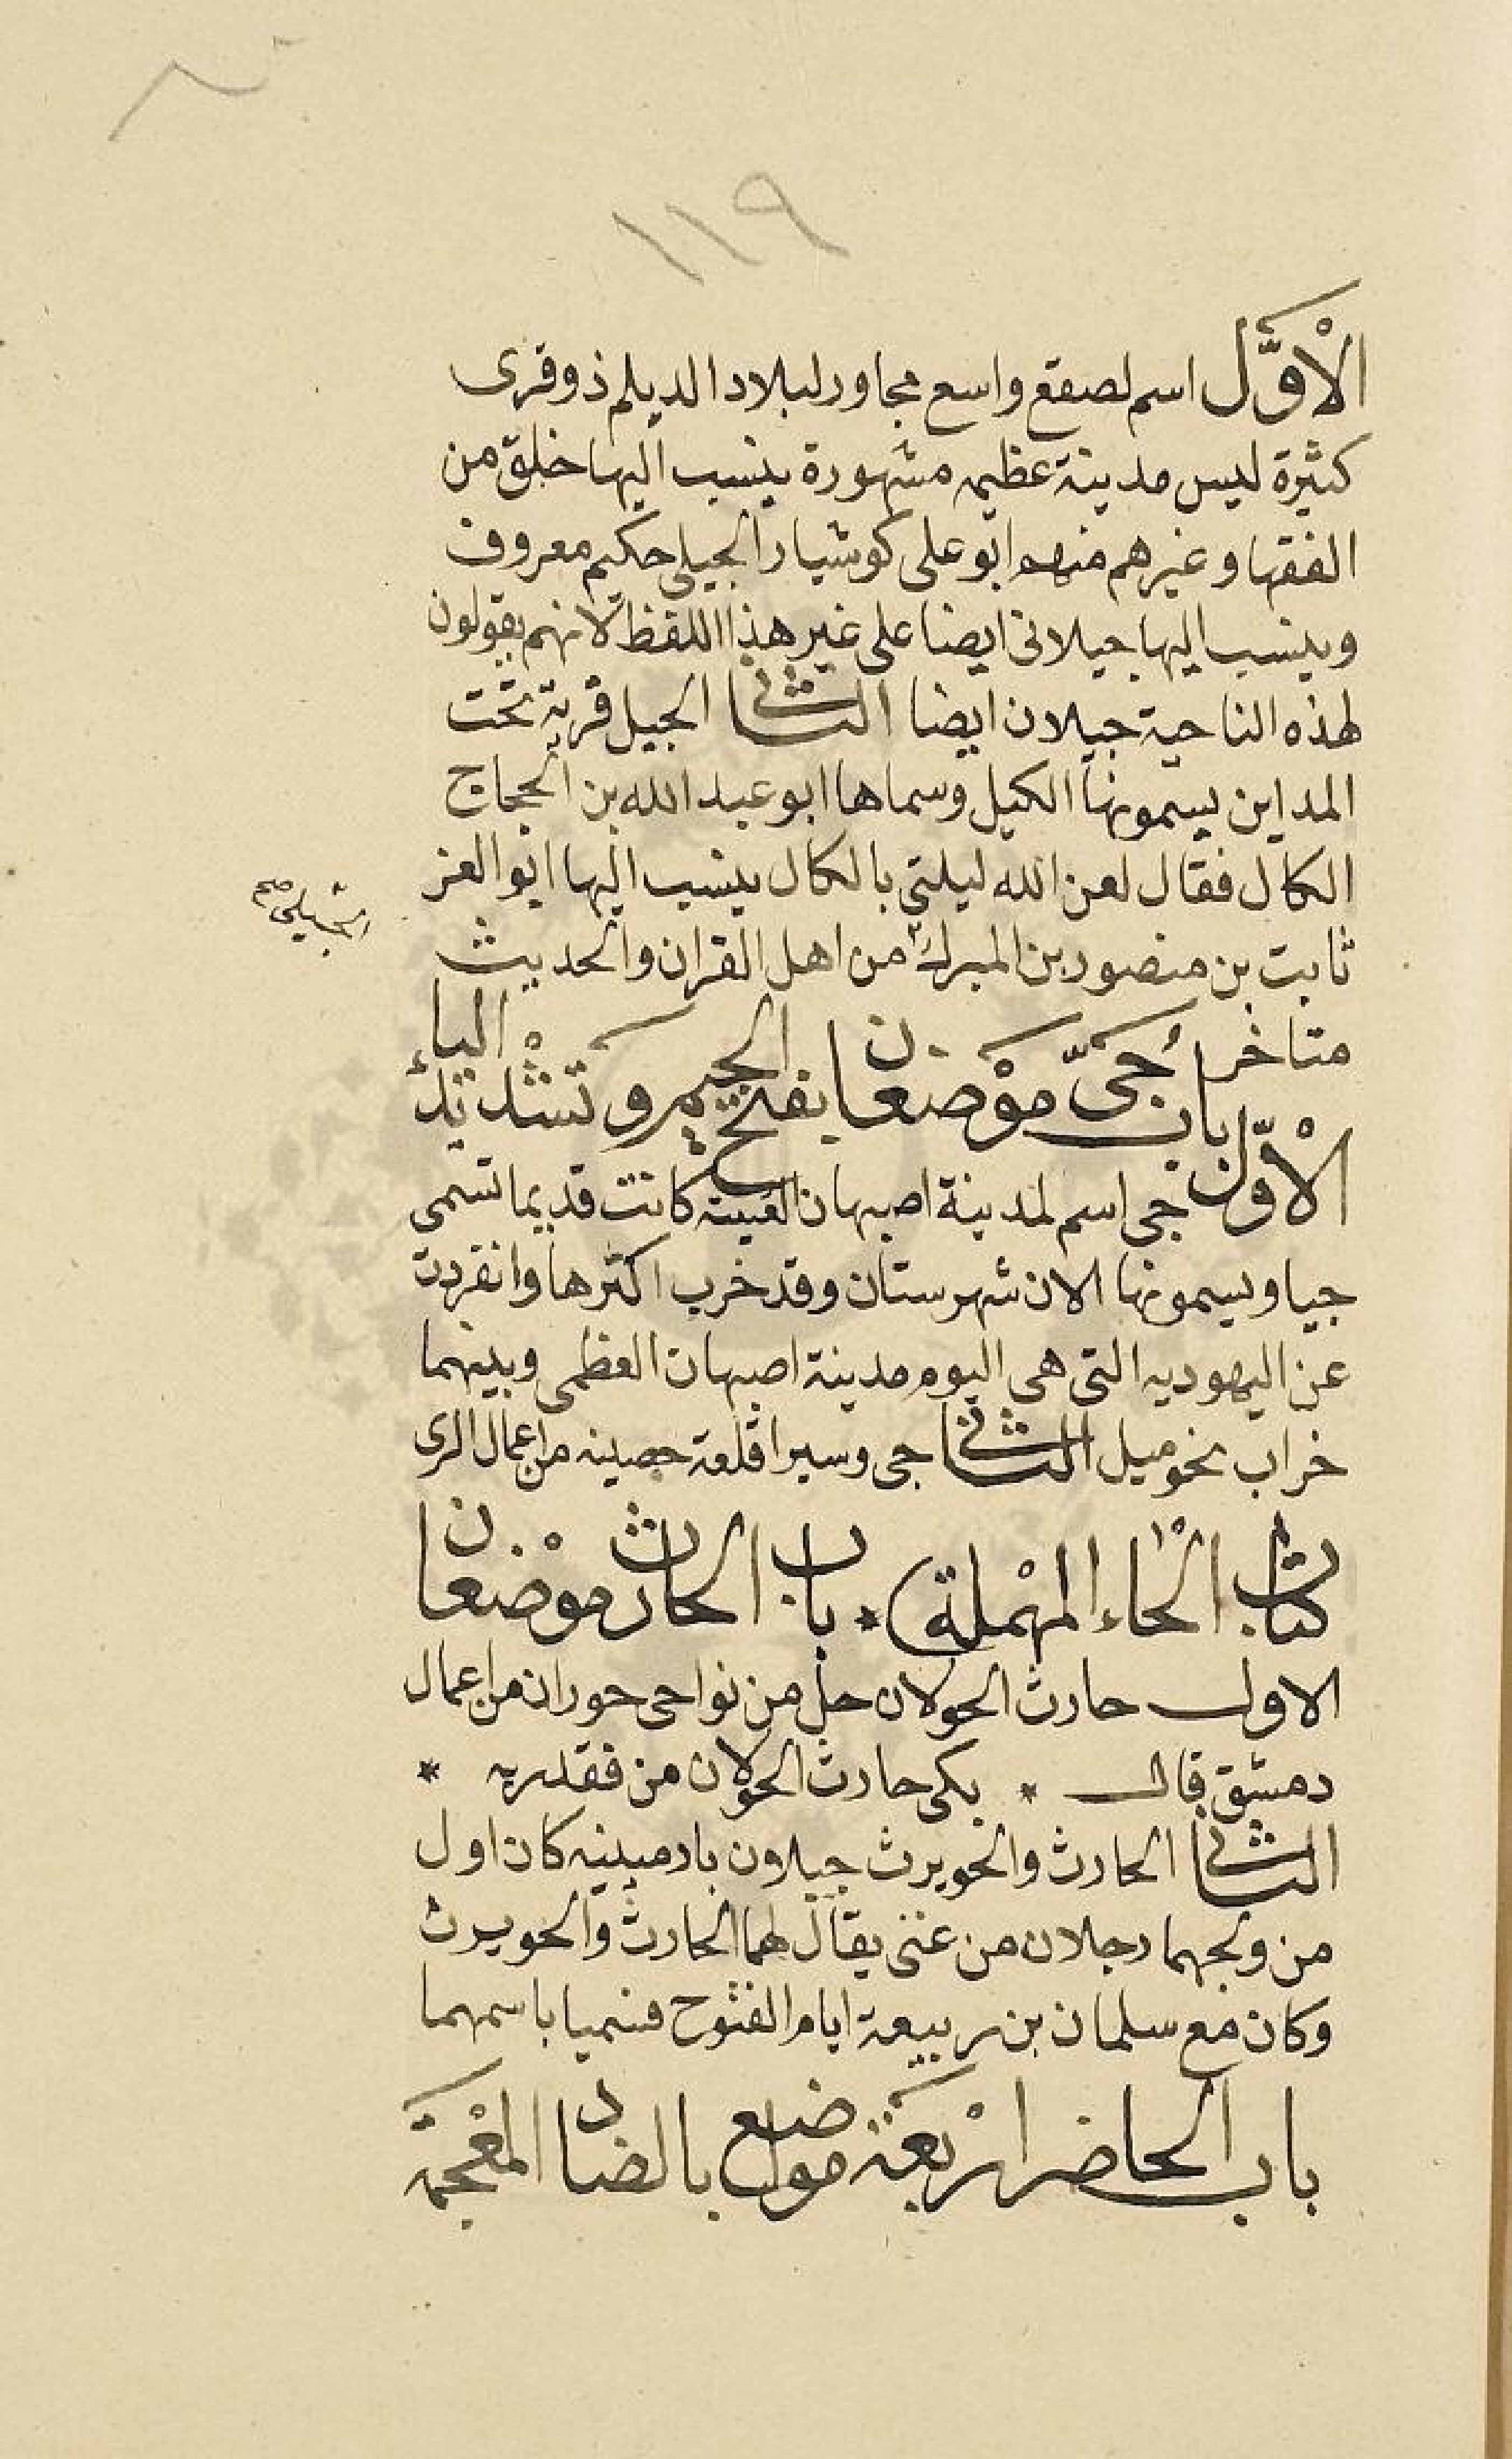 ١١٩
الْأوَّل اسم لصقع واسع مجاور لبلاد الديلم ذو قرى
كثيرة ليس مدينة عظيمه مشهورة ينسب اليها خلق من
الفقها وغيرهم منهم ابو على كوشيار الجيلى حكيم معروف
وينسب اليها جيلانى ايضا على غير هذا اللفظ لانهم يقولون
لهذه الناحية جيلان ايضا الثانى الجيل قرية تحت
المداين يسمونها الكيل وسماها ابو عبد الله بن الحجاج
الكال فقال لعن الله ليلتي بالكال ينسب اليها ابو العز
ثابت بن منصور بن المبرك من اهل القران والحديث
الجيلى صح
متاخر باب جَىّ موْضعان بفتح الجيم وتشديْد الياء
الْأوّل جى اسم لمدينة اصبهان القيمة كانت قديما تسمى
جيا ويسمونها الان شهرستان وقد خرب اكثرها وانفردت
عن اليهوديه التى هى اليوم مدينة اصبهان العظمى وبينهما
خراب نحو ميل الثانى جى وسيرا قلعة حصينه من اعمال الرى
كتاب الْحاء المهْملة * باب الحارث موْضعان
الاول حارث الحولان جبل من نواحى حوران من اعمال
دمشق قال * بكى حارث الحولان من فقد ربه *
الثانى الحارث والحويرث جبلان بارمينيه كان اول
من ولجهما رجلان من غنى يقال لهما الحارث والحويرث
وكان مع سلمان بن ربيعة ايام الفتوح فسميا باسمهما
باب الحاضر ارْبعَة مواضع بالضاد المعْجمَة